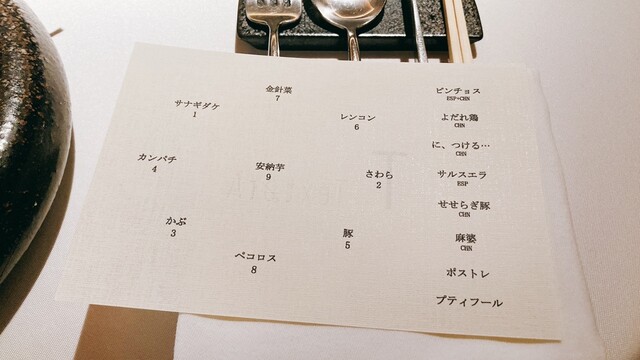 金針菜
7
サナギダケ
1
レンコン
6
カンパチ
4
安納芋
9
さわら
2
かぶ
3
豚
5
ペコロス
8
ピンチョス
ESP+CHN
よだれ鶏
CHN
に、つける…
CHN
サルスエラ
ESP
せせらぎ豚
CHN
麻婆
CHN
ポストレ
プティフール